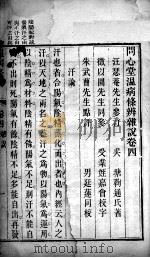 問心堂溫病條辨雜說卷四
汪瑟菴先生參訂　吳　瑭鞠通氏著
徵以園先生同參　受業姪嘉會校字
朱武曹先生點評　男廷蓮同校
汗論
汗也者合陽氣陰精蒸化而出者也內經云人之
汗以天地之雨名之蓋汗之為物以陽氣為運用
以陰精為材料陰精有餘陽氣不足則汗不能自
出不出則死陽氣有餘陰精不足多能自出再發